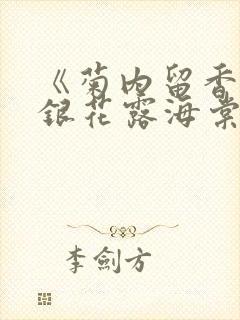 《菊内留香
銀花露海棠
李劍方